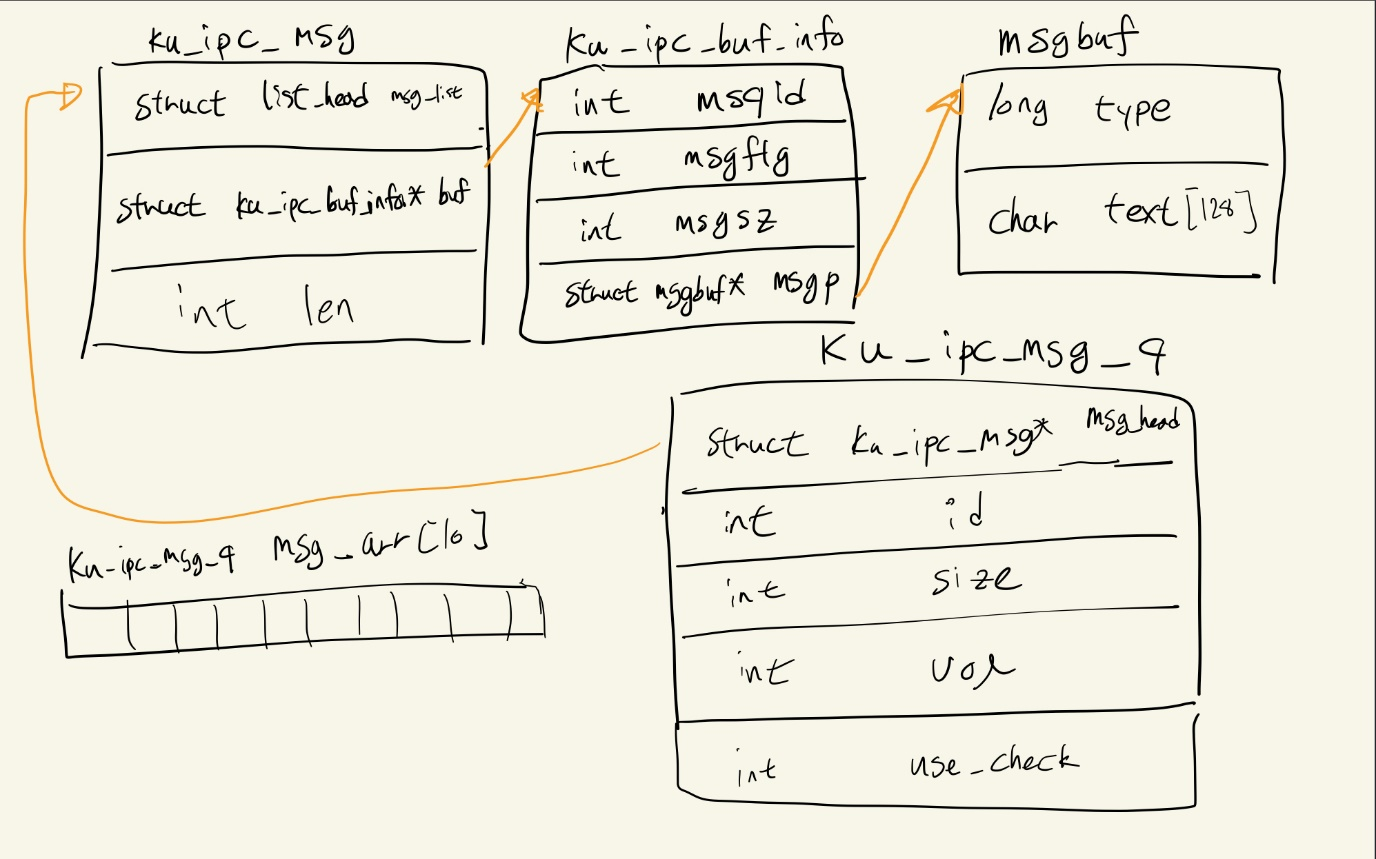 ku_ipc_msg
struct list_head msg_list
struct ku_ipc_buf_info* buf
int len
Ku_ipc_buf_info
int msqid
int msgflg
int msgsz
struct msgbuf* msgp
msgbuf
long type
char text[128]
Ku_ipc_msg_q
struct ku_ipc_msg* msg_head
int id
int size
int vol
int use_check
Ku_ipc_msg_q msg_arr[10]